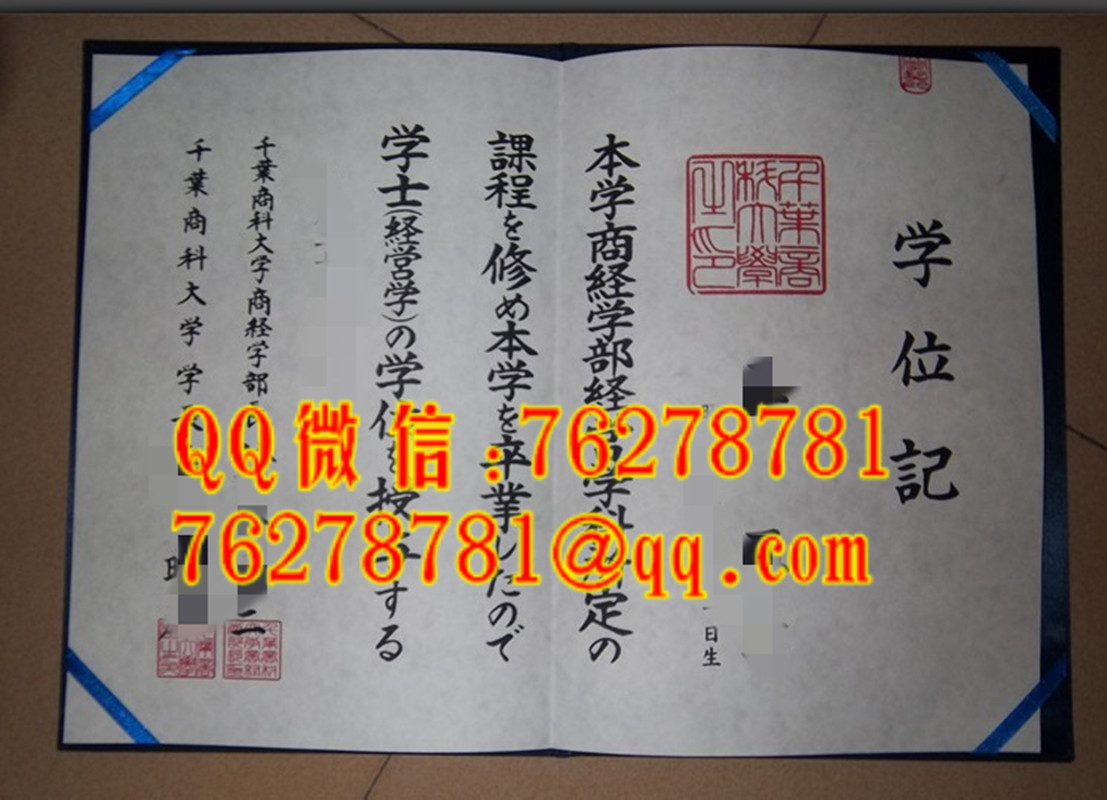 学位記
日生
本学商経学部経営学科所定の
課程を修め本学を卒業したので
学士(経営学)の学位を授与する
千葉商科大学商経学部長
千葉商科大学学長
QQ微信:76278781
76278781@qq.com